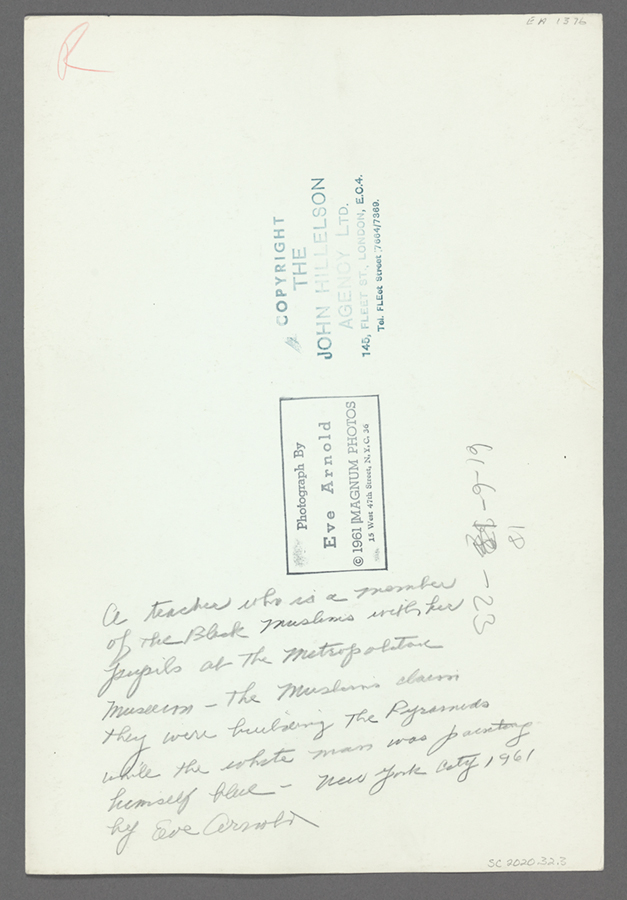 R
EA 1376
COPYRIGHT
THE
JOHN HILLELSON
AGENCY LTD.
145, FLEET ST., LONDON, E.C.4.
Tel. FLEet Street 7664/7369.
Photograph By
Eve Arnold
© 1961 MAGNUM PHOTOS
15 West 47th Street, N.Y.C. 36
61-6-
81
-23
A teacher who is a member
of the Black Muslims with her
pupils at the Metropolitan
Museum - the Muslims claim
they were building the Pyramids
while the white man was painting
himself blue - New York City 1961
by Eve Arnold
SC2020.32.3